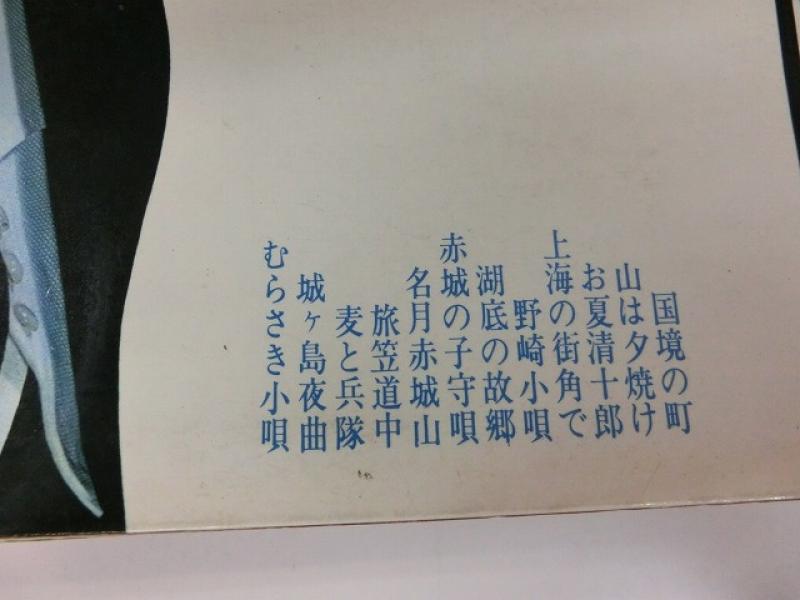 国境の町
山は夕焼け
お夏清十郎
上海の街角で
野崎小唄
湖底の故郷
赤城の子守唄
名月赤城山
旅笠道中
麦と兵隊
城ヶ島夜曲
むらさき小唄